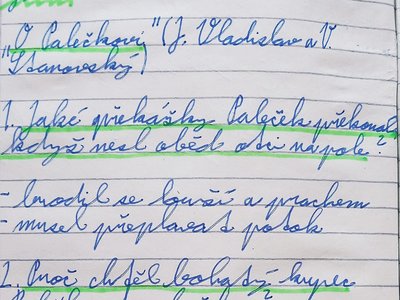 "O Palečkovi" (J. Vladislav a V.
Stanovský)
1. Jaké překážky Paleček překonal,
když nesl oběd otci na pole?
- brodil se travší a prachem
- musel přeplavat potok
2. Proč chtěl bohatý kupec